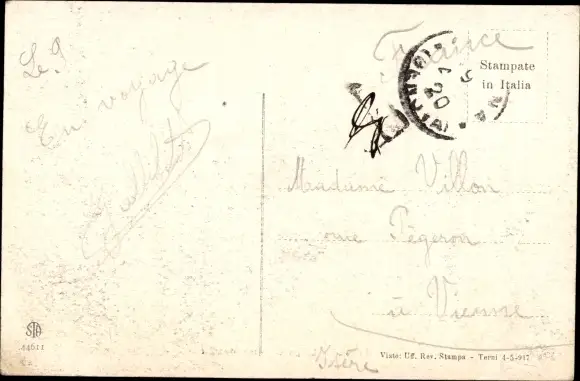 Le 9
En voyage
France
Stampate
in Italia
20
Madame Villon
rue Pégeron
à Vienne
Isère
STA
44611
Visto: Uff. Rev. Stampa - Terni 4-5-917